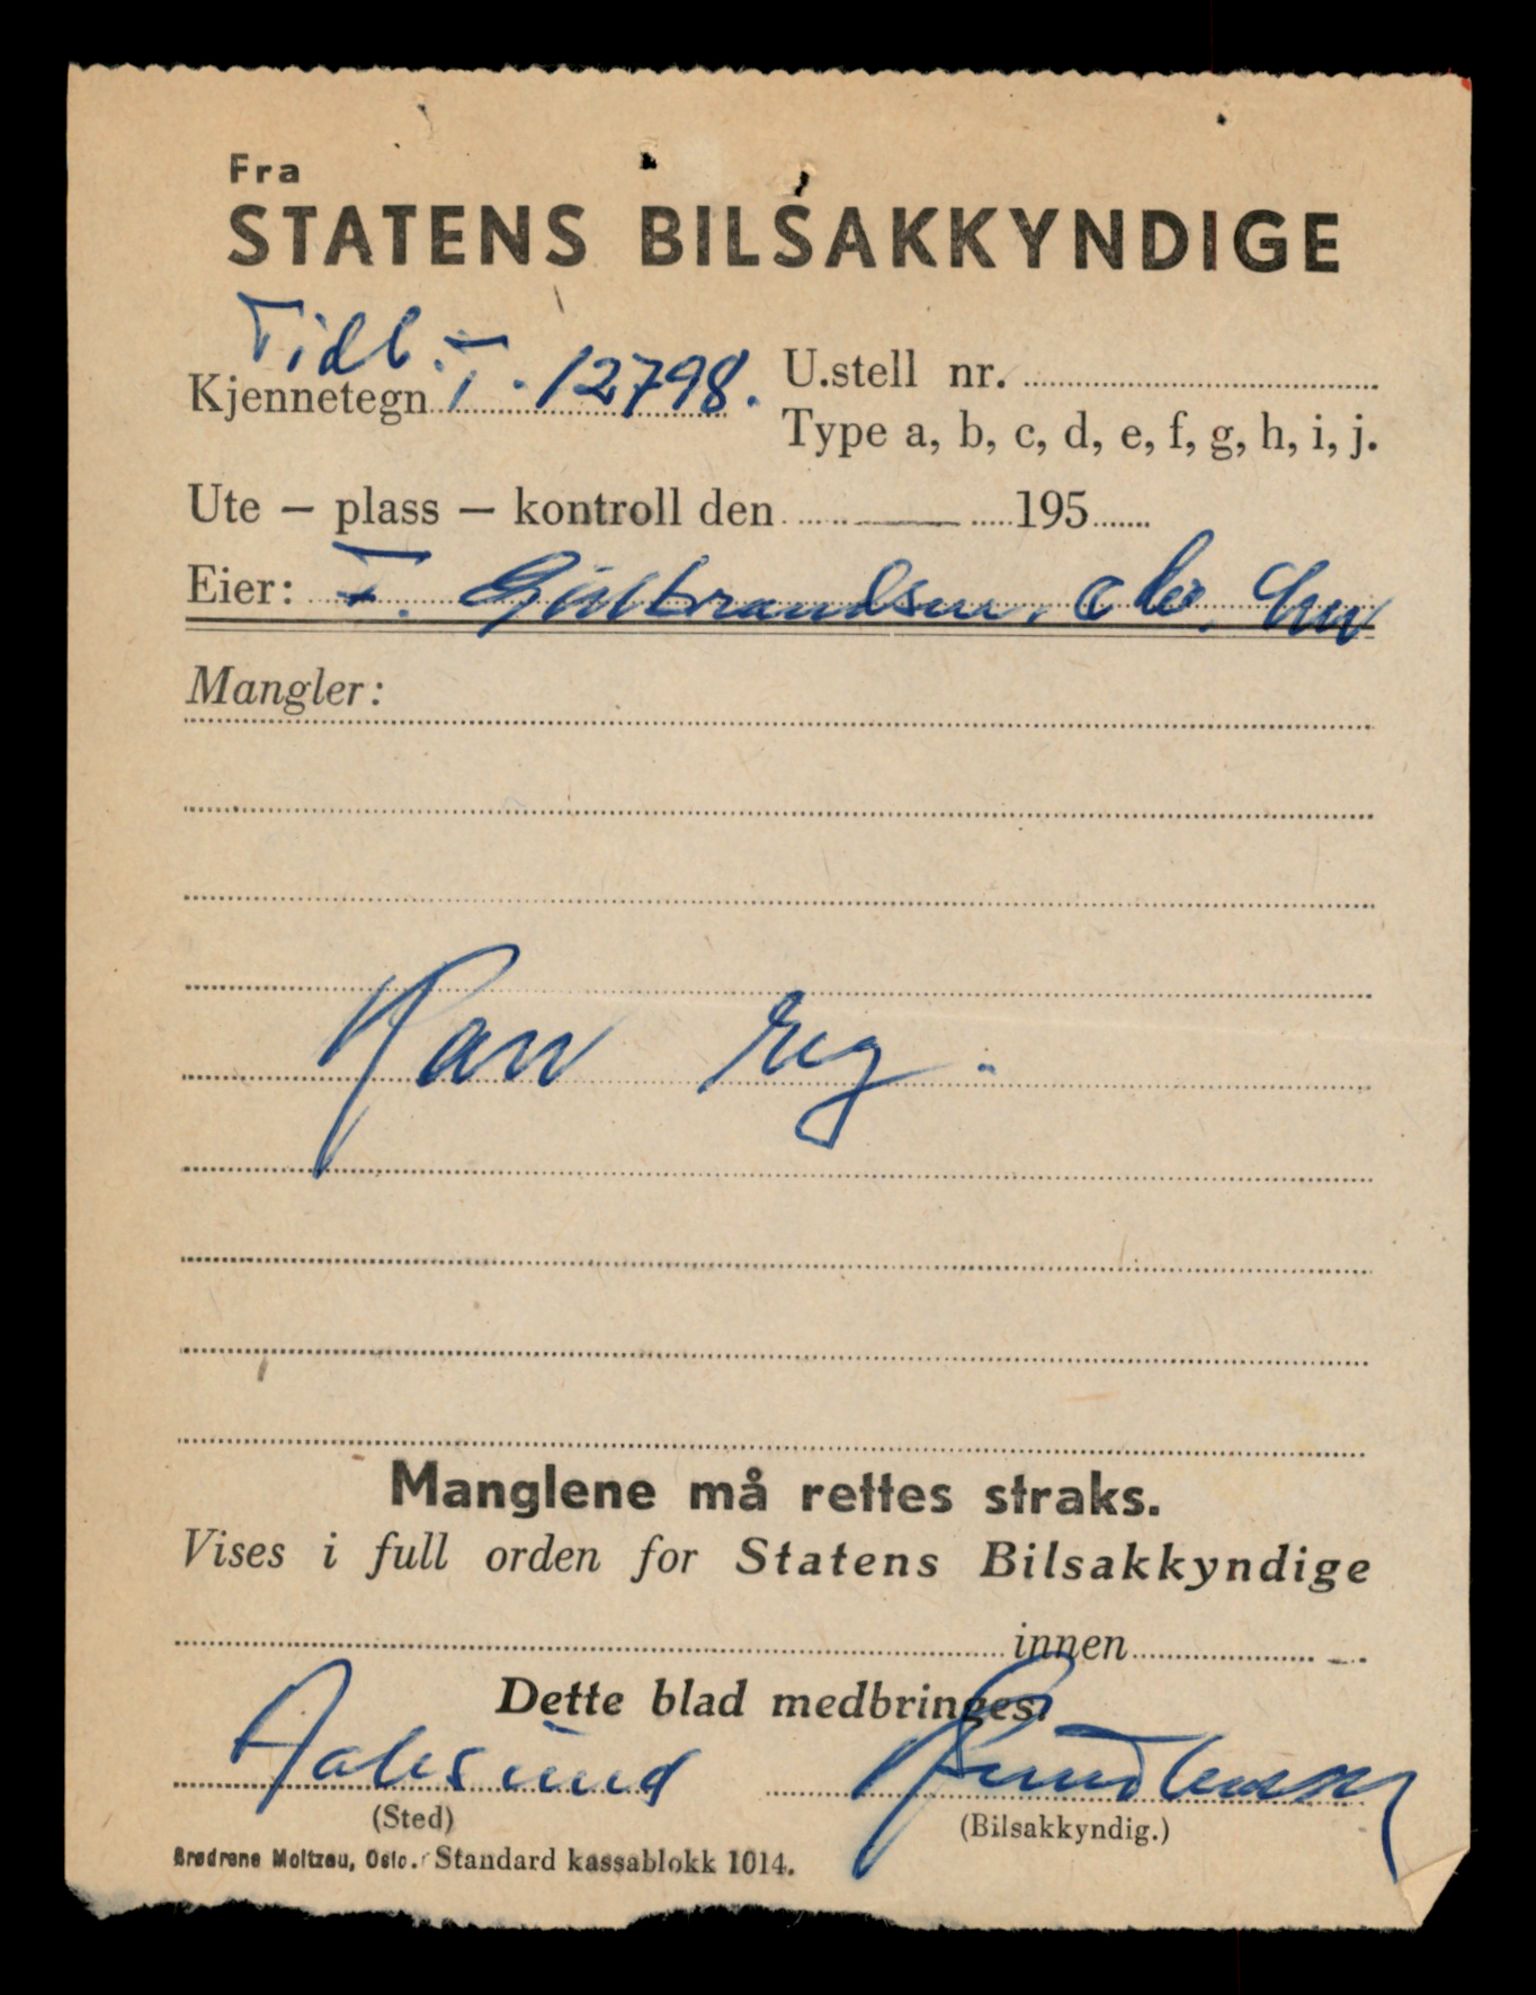 Fra
STATENS BILSAKKYNDIGE
Tidl.
Kjennetegn T.12798. U.stell nr.
Type a, b, c, d, e, f, g, h, i, j.
Ute – plass – kontroll den 195
Eier:
Mangler:
Kan reg.
Manglene må rettes straks.
Vises i full orden for Statens Bilsakkyndige
innen
Dette blad medbringes.
Aalesund
(Sted) (Bilsakkyndig.)
Brødrene Moltzau, Oslo. Standard kassablokk 1014.